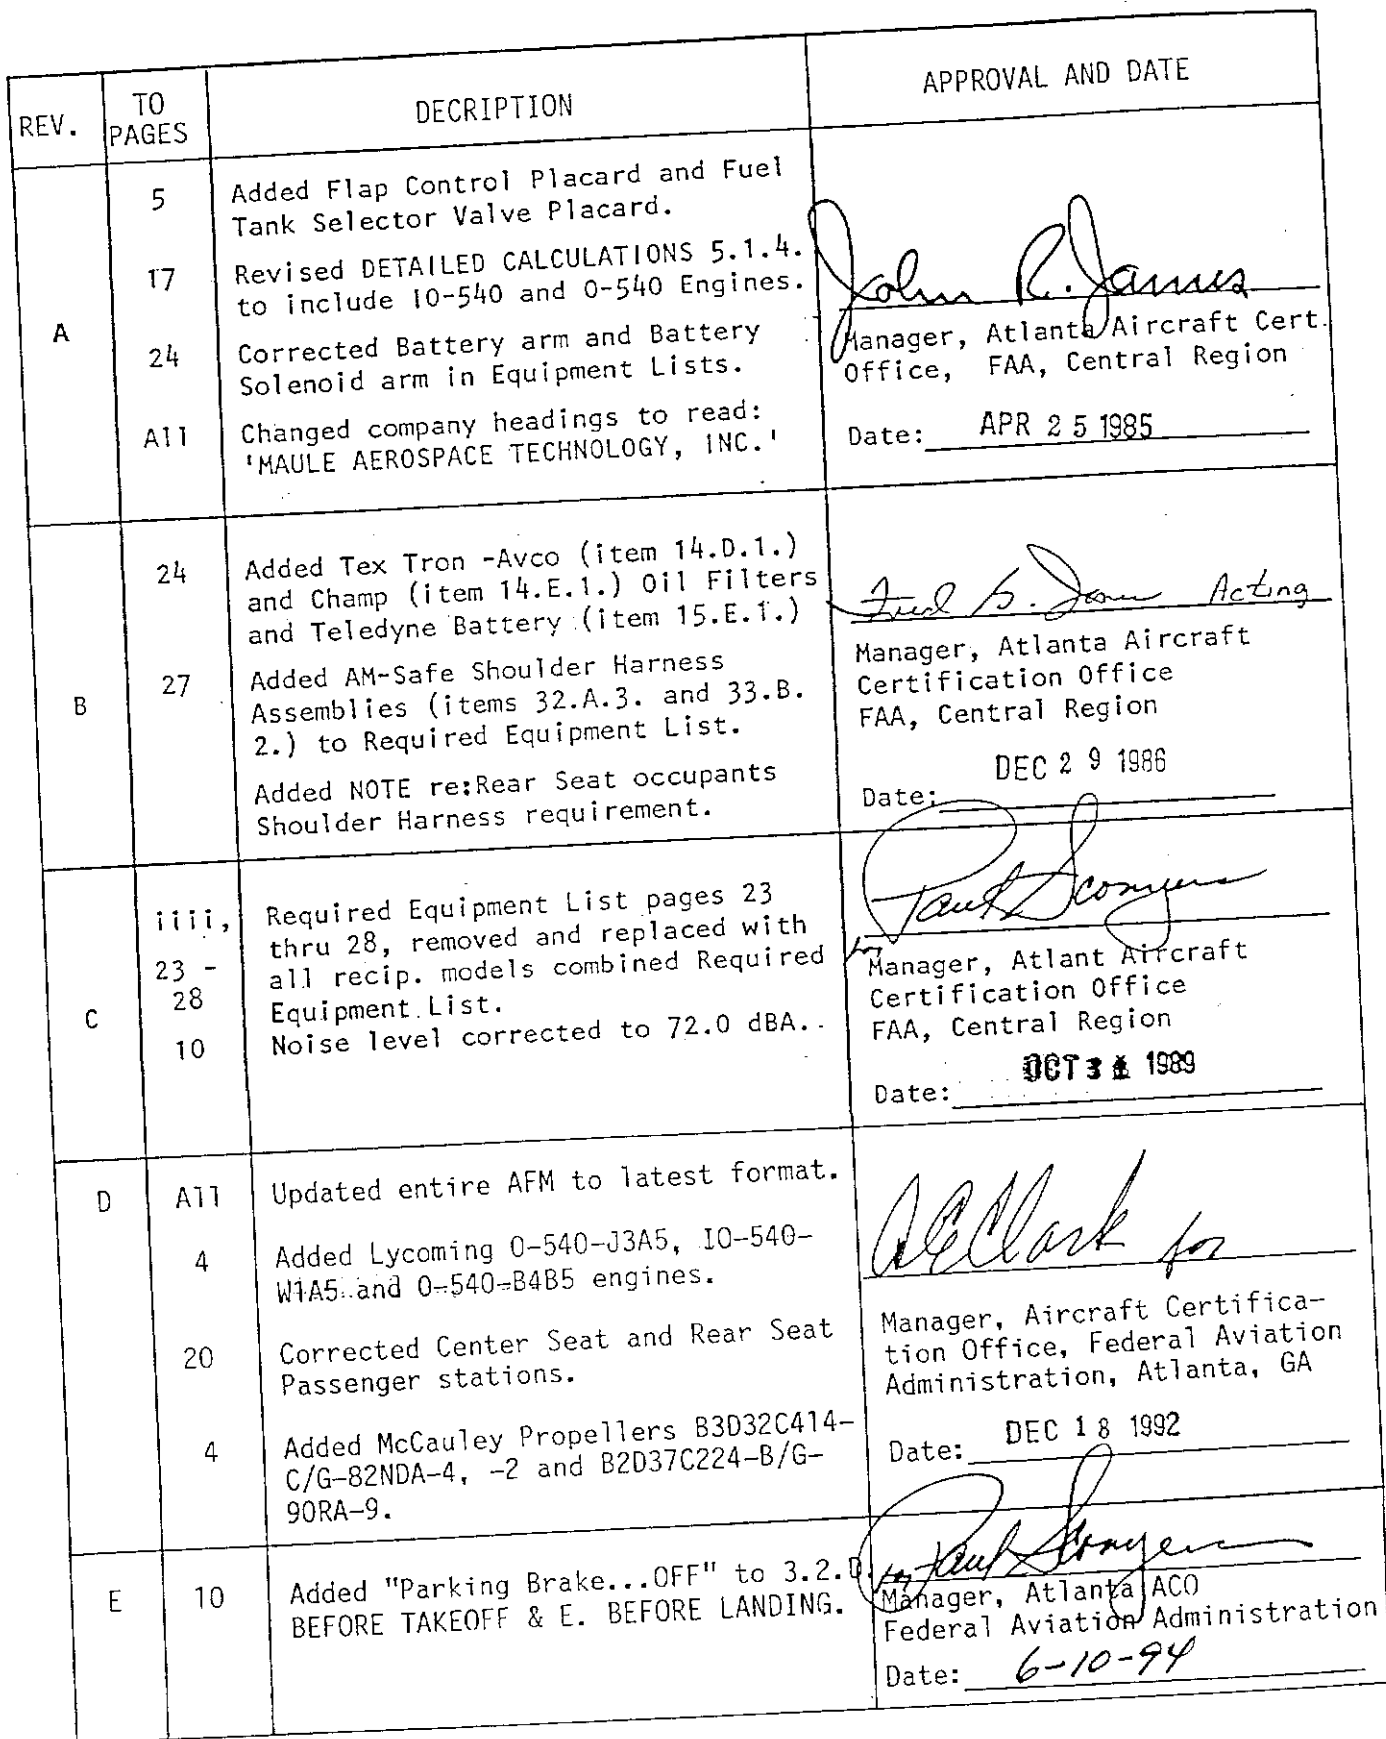 REV.
TO
PAGES
DECRIPTION
APPROVAL AND DATE
A
5
Added Flap Control Placard and Fuel
Tank Selector Valve Placard.
17
Revised DETAILED CALCULATIONS 5.1.4.
to include IO-540 and O-540 Engines.
24
Corrected Battery arm and Battery
Solenoid arm in Equipment Lists.
All
Changed company headings to read:
'MAULE AEROSPACE TECHNOLOGY, INC.'
John R. James
Manager, Atlanta Aircraft Cert.
Office, FAA, Central Region
Date: APR 25 1985
B
24
Added Tex Tron -Avco (item 14.D.1.)
and Champ (item 14.E.1.) Oil Filters
and Teledyne Battery (item 15.E.1.)
27
Added AM-Safe Shoulder Harness
Assemblies (items 32.A.3. and 33.B.
2.) to Required Equipment List.
Added NOTE re:Rear Seat occupants
Shoulder Harness requirement.
Acting
Manager, Atlanta Aircraft
Certification Office
FAA, Central Region
DEC 29 1986
Date:
C
iiii,
23 -
28
Required Equipment List pages 23
thru 28, removed and replaced with
all recip. models combined Required
Equipment List.
10
Noise level corrected to 72.0 dBA.
Paul Sconyers
for
Manager, Atlant Aircraft
Certification Office
FAA, Central Region
OCT 1989
Date:
D
All
Updated entire AFM to latest format.
4
Added Lycoming O-540-J3A5, IO-540-
W1A5 and O-540-B4B5 engines.
20
Corrected Center Seat and Rear Seat
Passenger stations.
4
Added McCauley Propellers B3D32C414-
C/G-82NDA-4, -2 and B2D37C224-B/G-
90RA-9.
Clark for
Manager, Aircraft Certifica-
tion Office, Federal Aviation
Administration, Atlanta, GA
Date: DEC 18 1992
E
10
Added "Parking Brake...OFF" to 3.2.D.
BEFORE TAKEOFF & E. BEFORE LANDING.
for Paul Sconyers
Manager, Atlanta ACO
Federal Aviation Administration
Date: 6-10-94